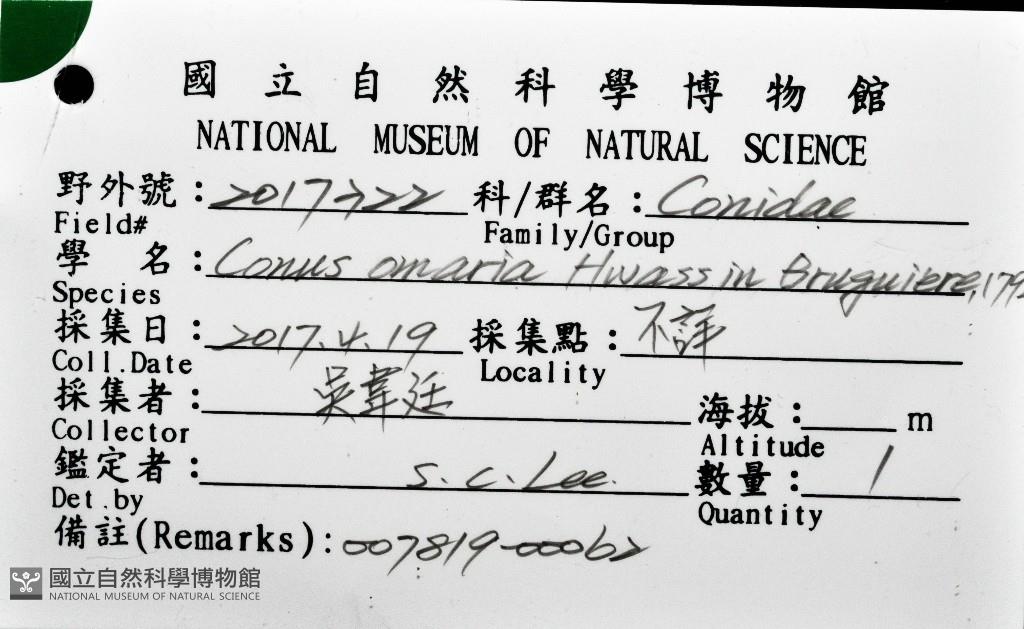 國立自然科學博物館
NATIONAL MUSEUM OF NATURAL SCIENCE
野外號：2017722 科/群名：Conidae
Field# Family/Group
學名：Conus omaria Hwass in Bruguiere, 179
Species
採集日：2017.4.19 採集點：不詳
Coll.Date Locality
採集者：吳韋廷 海拔：m
Collector Altitude
鑑定者：S.C.Lee. 數量：1
Det.by Quantity
備註(Remarks)：007819-00062
國立自然科學博物館
NATIONAL MUSEUM OF NATURAL SCIENCE